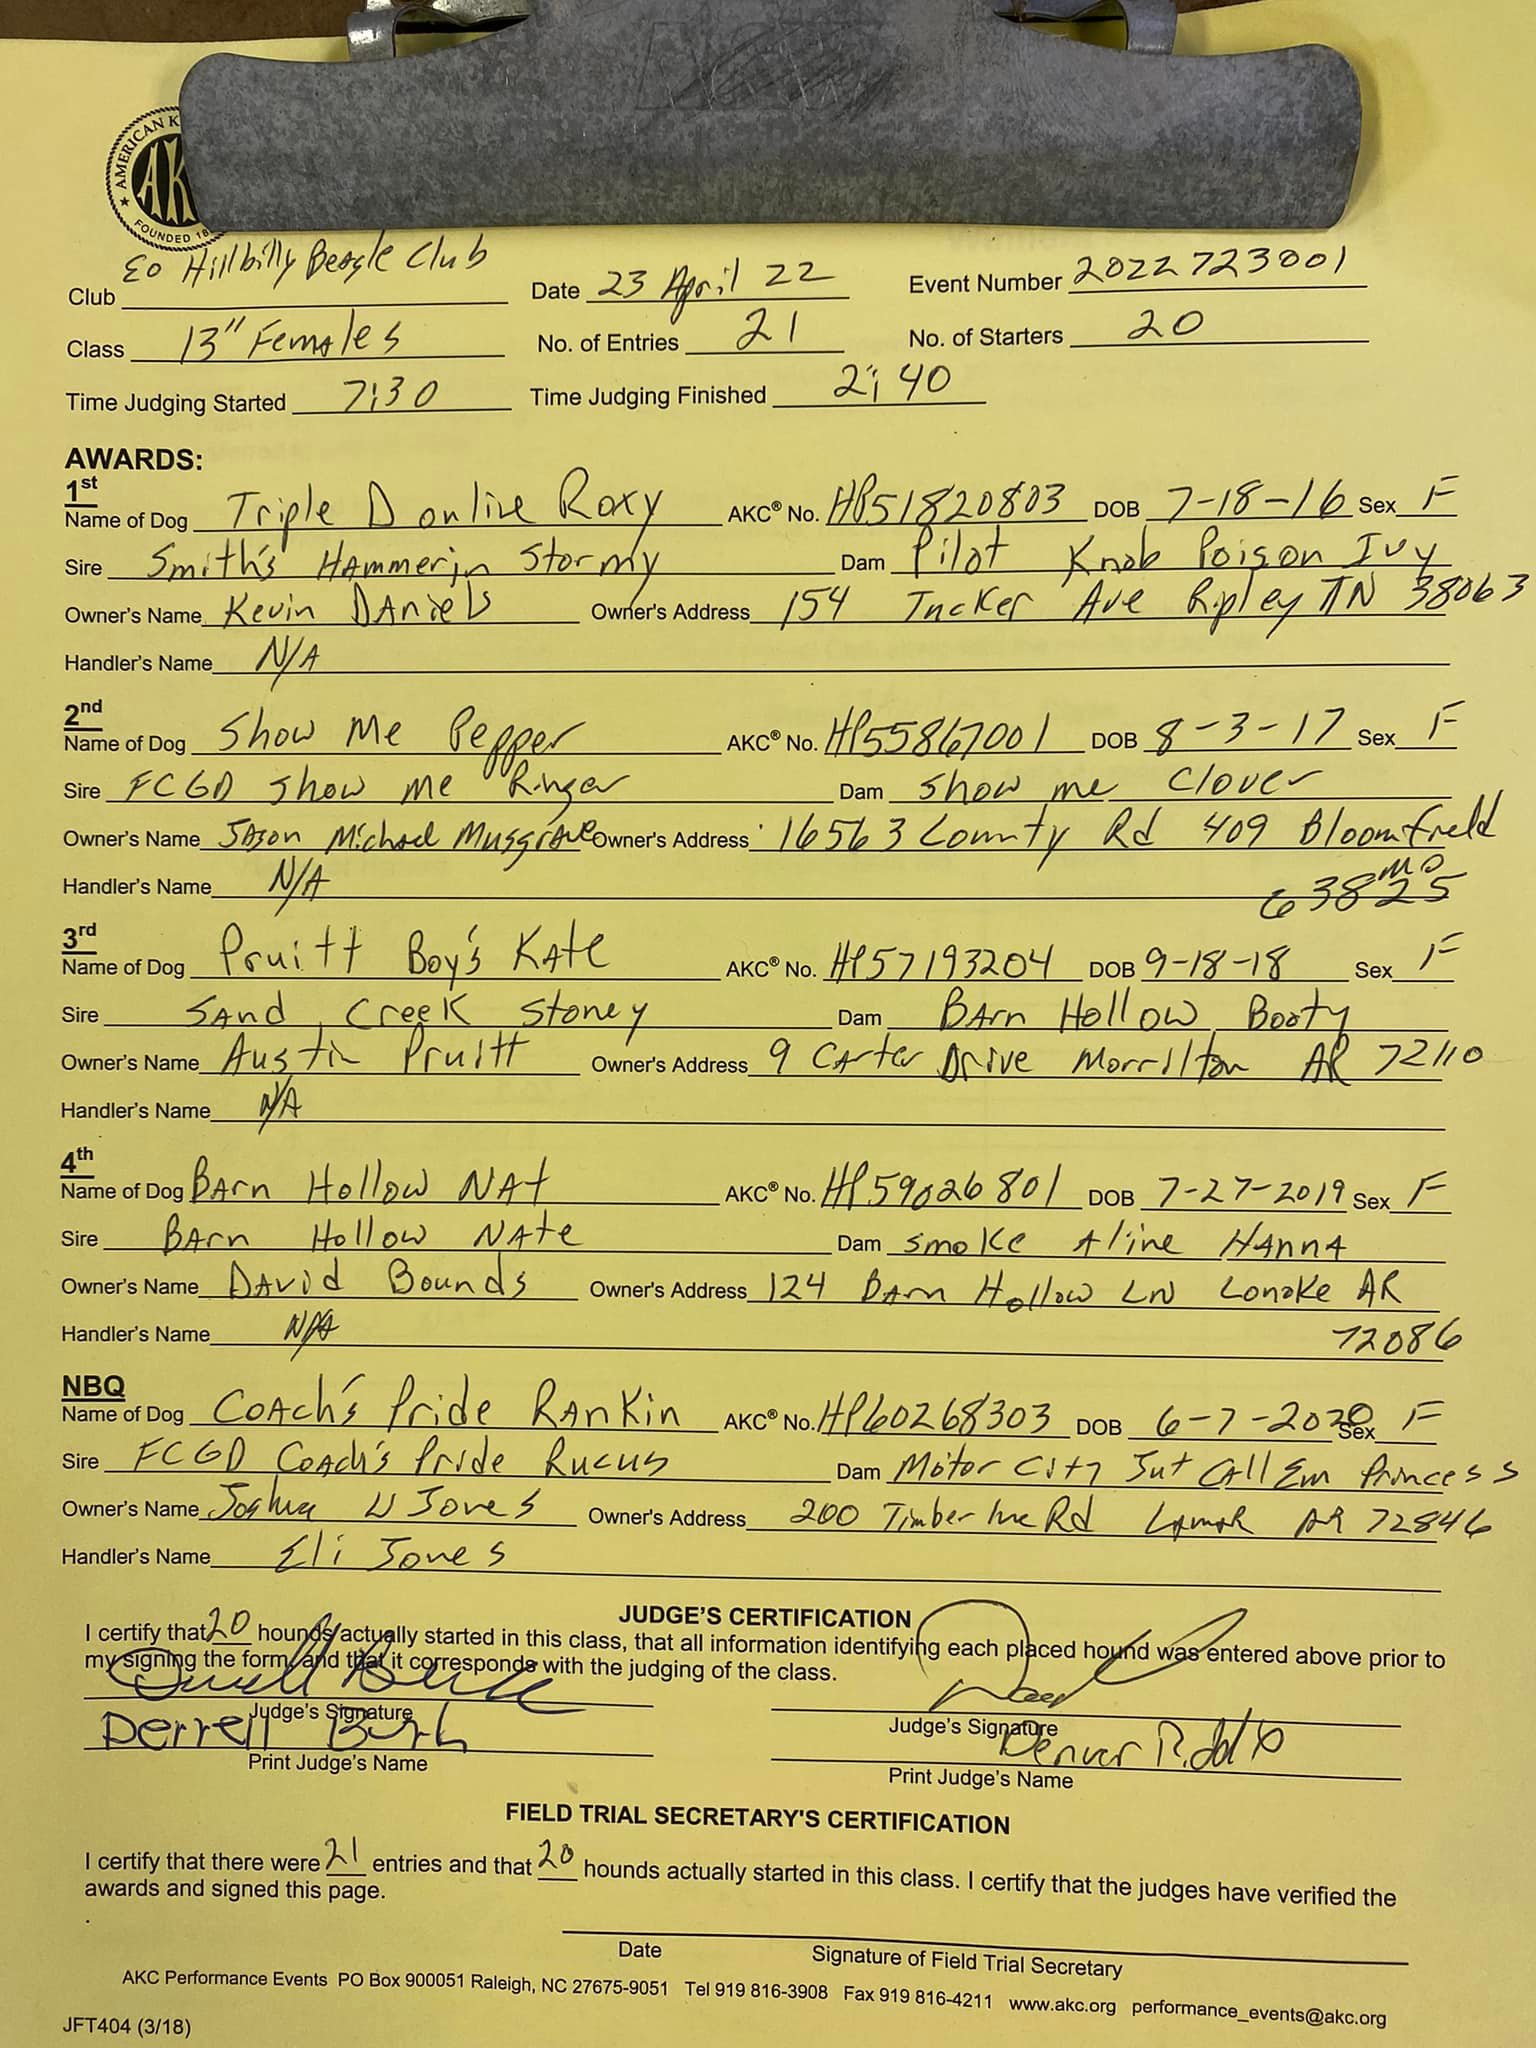 AMERICAN K
AK
FOUNDED 18
Club EO Hillbilly Beagle Club Date 23 April 22 Event Number 2022723001
Class 13" Females No. of Entries 21 No. of Starters 20
Time Judging Started 7:30 Time Judging Finished 2:40
AWARDS:
1st
Name of Dog Triple D online Roxy AKC® No. HP51820803 DOB 7-18-16 Sex F
Sire Smith's Hammerin Stormy Dam Pilot Knob Poison Ivy
Owner's Name Kevin Daniels Owner's Address 154 Tucker Ave Ripley TN 38063
Handler's Name N/A
2nd
Name of Dog Show Me Pepper AKC® No. HP55867001 DOB 8-3-17 Sex F
Sire FCGD Show Me Ringer Dam Show me Clover
Owner's Name Jason Michael Musgrave Owner's Address 16563 County Rd 409 Bloomfield
MO
Handler's Name N/A 63825
3rd
Name of Dog Pruitt Boy's Kate AKC® No. HP57193204 DOB 9-18-18 Sex F
Sire Sand Creek Stoney Dam Barn Hollow Booty
Owner's Name Austin Pruitt Owner's Address 9 Carter Drive Morrilton AR 72110
Handler's Name N/A
4th
Name of Dog Barn Hollow Nat AKC® No. HP59026801 DOB 7-27-2019 Sex F
Sire Barn Hollow Nate Dam Smoke Aline Hanna
Owner's Name David Bounds Owner's Address 124 Barn Hollow LN Lonoke AR
Handler's Name N/A 72086
NBQ
Name of Dog Coach's Pride Rankin AKC® No. HP60268303 DOB 6-7-2020 Sex F
Sire FCGD Coach's Pride Rucus Dam Motor City Jut Call Em Princess
Owner's Name Joshua W Jones Owner's Address 200 Timberline Rd Lamar AR 72846
Handler's Name Eli Jones
JUDGE'S CERTIFICATION
I certify that 20 hounds actually started in this class, that all information identifying each placed hound was entered above prior to
my signing the form, and that it corresponds with the judging of the class.
Judge's Signature Judge's Signature
Derrell Denver
Print Judge's Name Print Judge's Name
FIELD TRIAL SECRETARY'S CERTIFICATION
I certify that there were 21 entries and that 20 hounds actually started in this class. I certify that the judges have verified the
awards and signed this page.
Date Signature of Field Trial Secretary
AKC Performance Events PO Box 900051 Raleigh, NC 27675-9051 Tel 919 816-3908 Fax 919 816-4211 www.akc.org performance_events@akc.org
JFT404 (3/18)